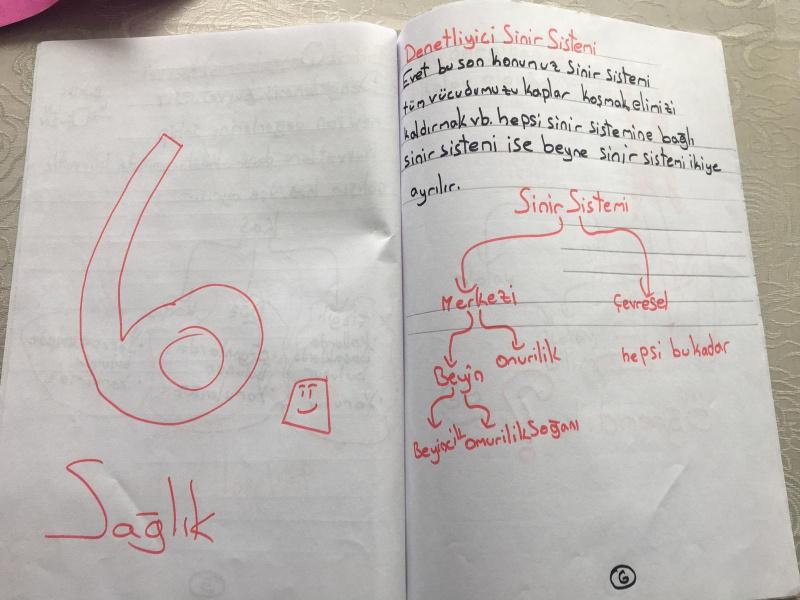 6
Sağlık
Denetliyici Sinir Sistemi
Evet bu son konunuz Sinir sistemi
tüm vücudumuzu kaplar koşmak, elimizi
kaldırmak vb. hepsi sinir sistemine bağlı
sinir sistemi ise beyne sinir sistemi ikiye
ayrılır.
Sinir Sistemi
Merkezi Çevresel
Beyin Omurilik hepsi bu kadar
Beyincik Omurilik Soğanı
6